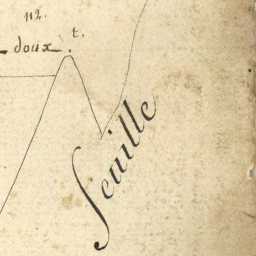 112.
doux t.
feuille